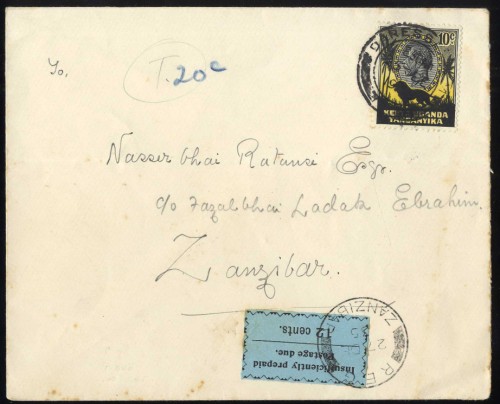 To,
T. 20c
10c
KENYA UGANDA
TANGANYIKA
Nasser bhai Ratansi Esqr.
c/o Fazalbhai Ladak Ebrahim
Zanzibar.
Insufficiently prepaid
Postage due.
12 cents.
ZANZIBAR
27